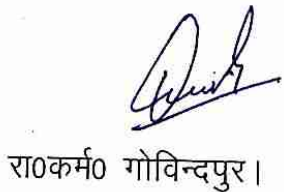 रा0कर्म0 गोविन्दपुर।